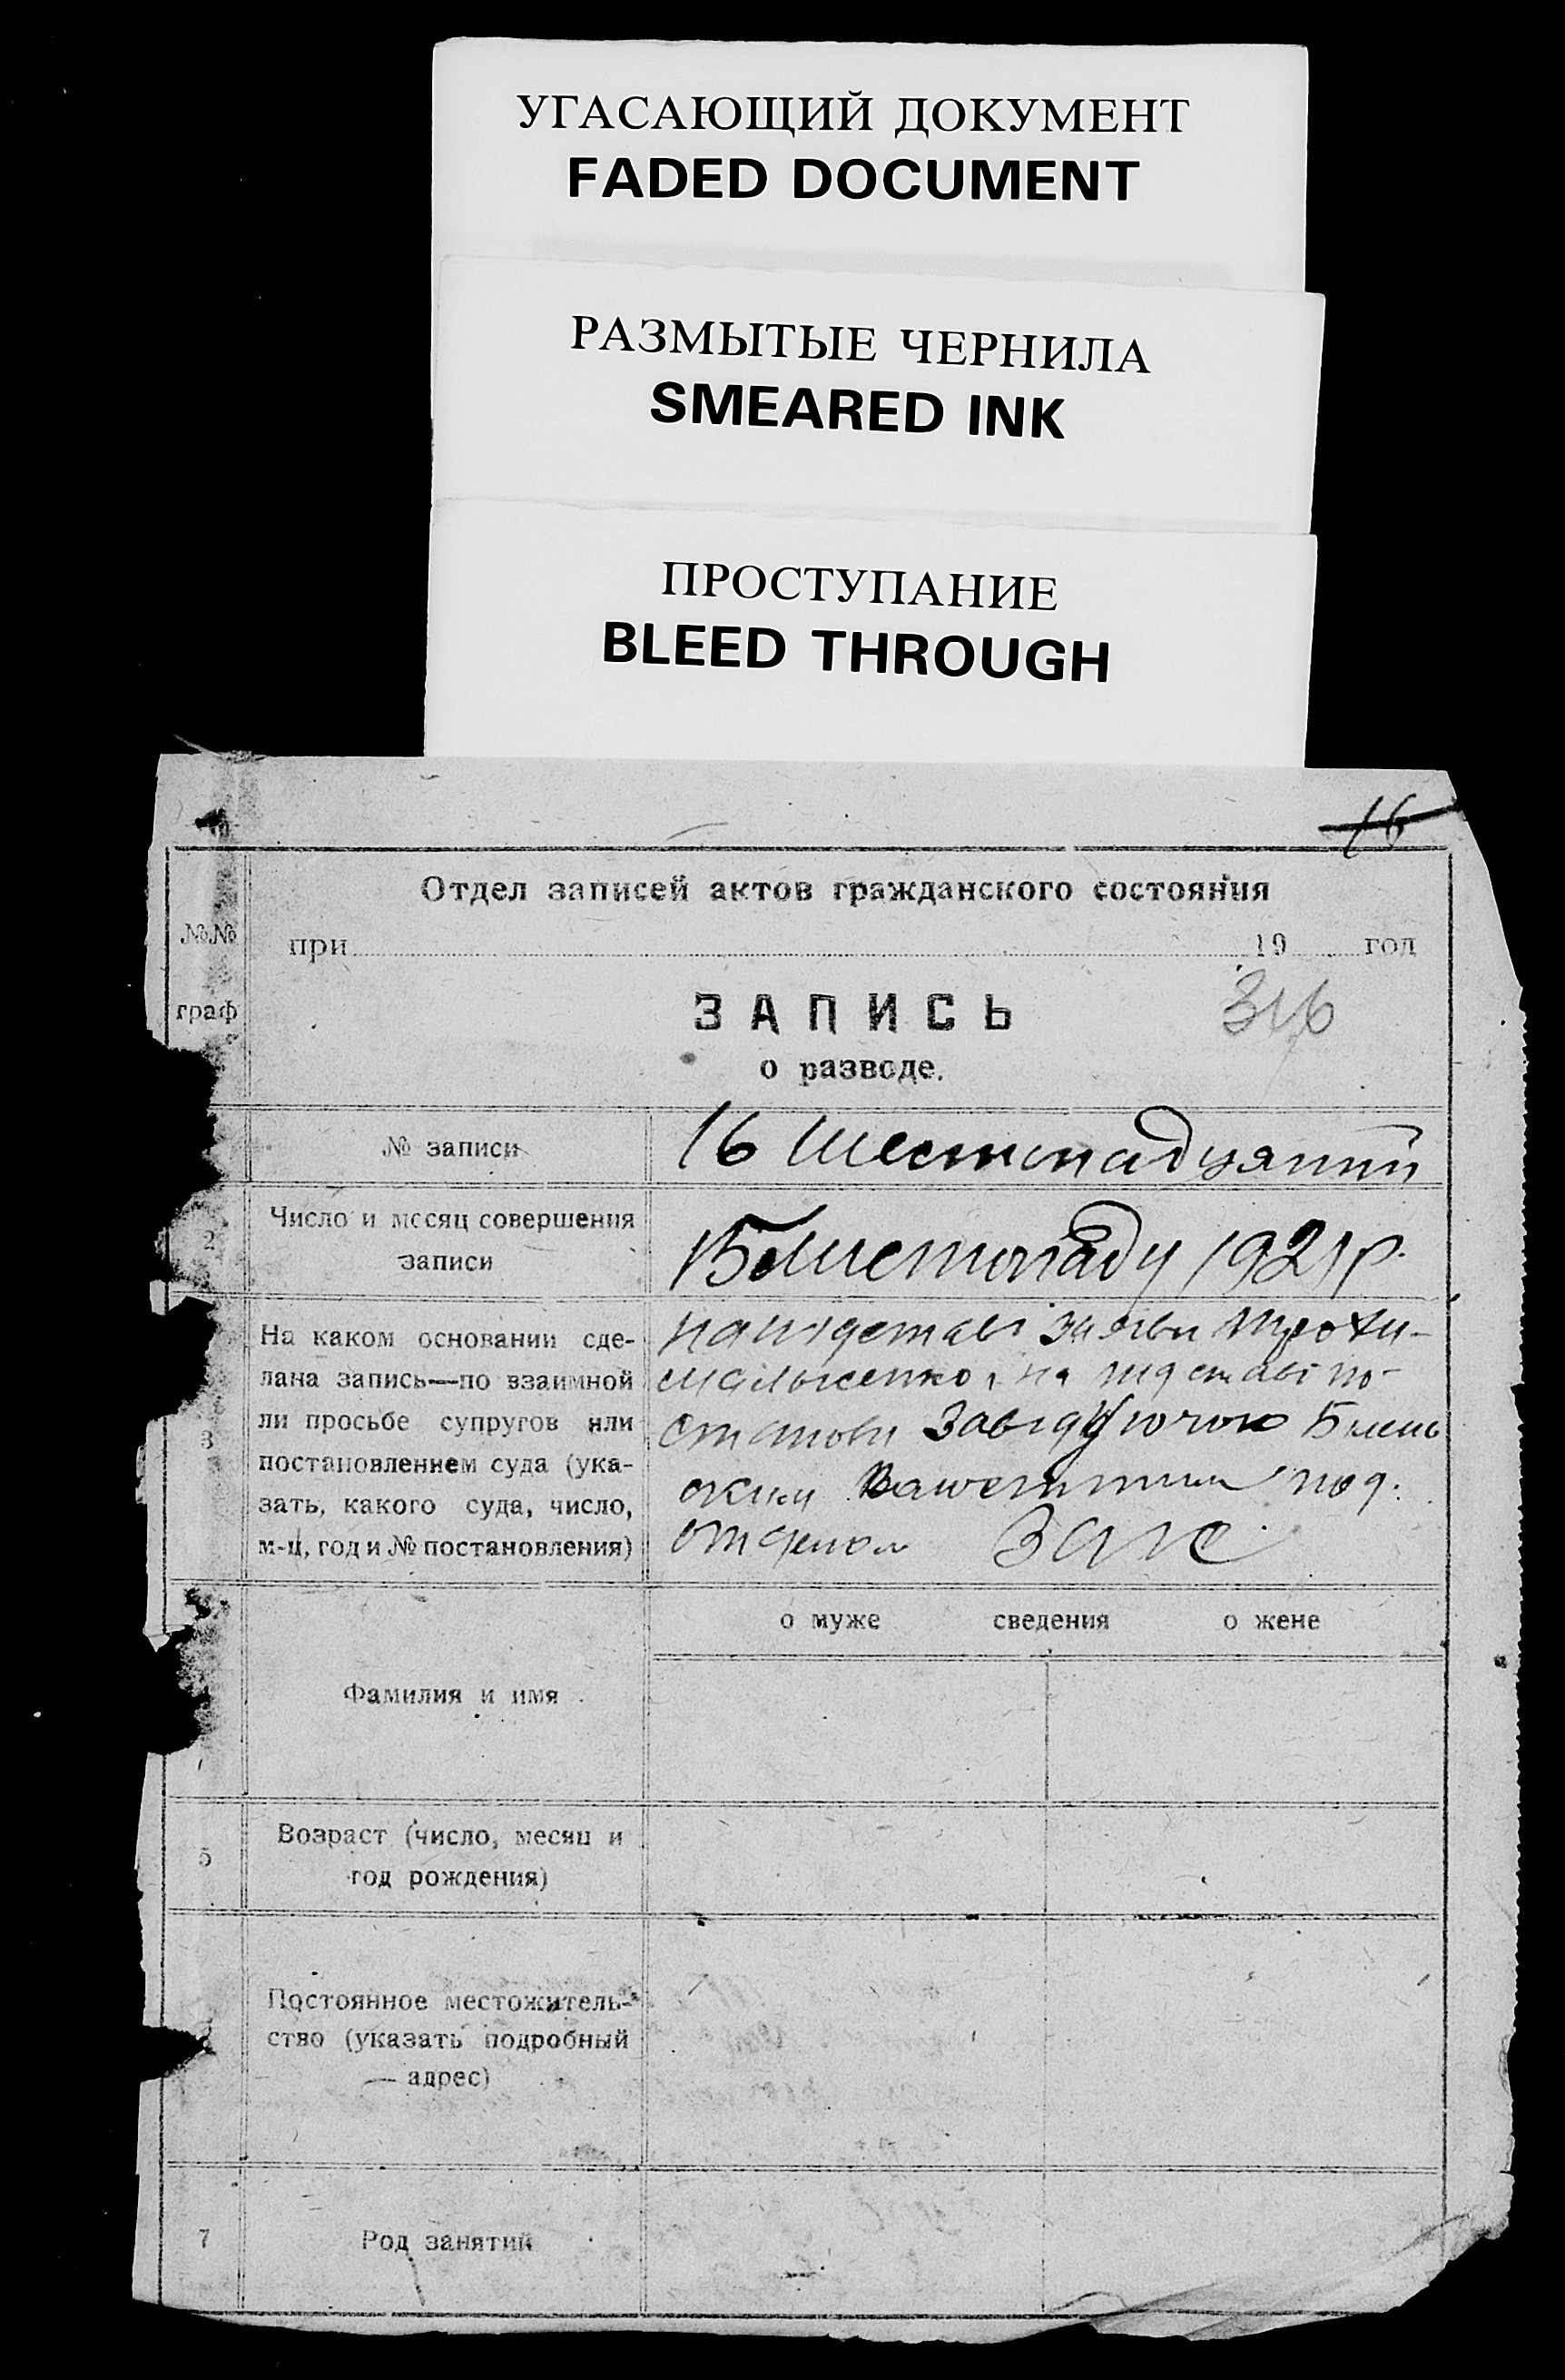 УГАСАЮЩИЙ ДОКУМЕНТ
FADED DOCUMENT
РАЗМЫТЫЕ ЧЕРНИЛА
SMEARED INK
ПРОСТУПАНИЕ
BLEED THROUGH
16
Отдел записей актов гражданского состояния
№№ граф
при 19 год
ЗАПИСЬ
316
о разводе.
№ записи
16
2
Число и месяц совершения
записи
Листопаду 1921 р.
3
На каком основании сде-
лана запись—по взаимной
ли просьбе супругов или
постановлением суда (ука-
зать, какого суда, число,
м-ц, год и № постановления)
на підставі заяви
на підставі по-
станови Завідуючою
под.
отделом ЗАГС
о муже сведения о жене
Фамилия и имя
5
Возраст (число, месяц и
год рождения)
Постоянное местожитель-
ство (указать подробный
адрес)
7
Род занятий